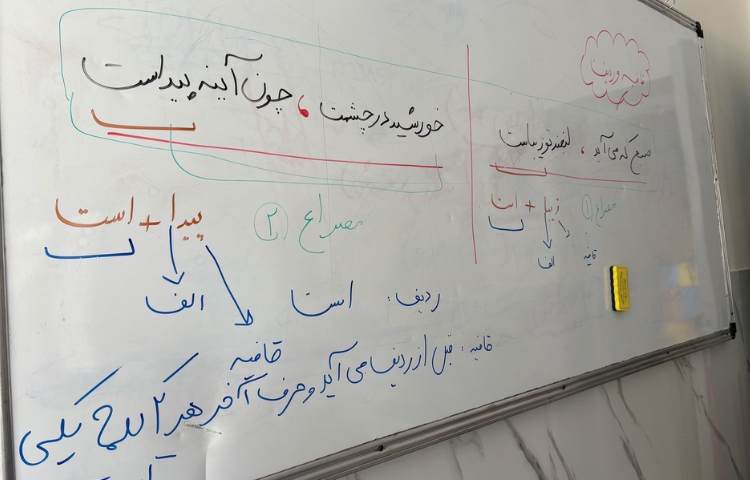 قافیه و ردیف
صبح که می‌آید ، لبخند تو زیباست
مصراع ①
زیبا + است
الف
قافیه
خورشید در چشمت ، چون آینه پیداست
مصراع ②
پیدا + است
الف
قافیه
ردیف: است
قافیه: قبل از ردیف می آید و حرف آخر هر ۲ کلمه یکی
است